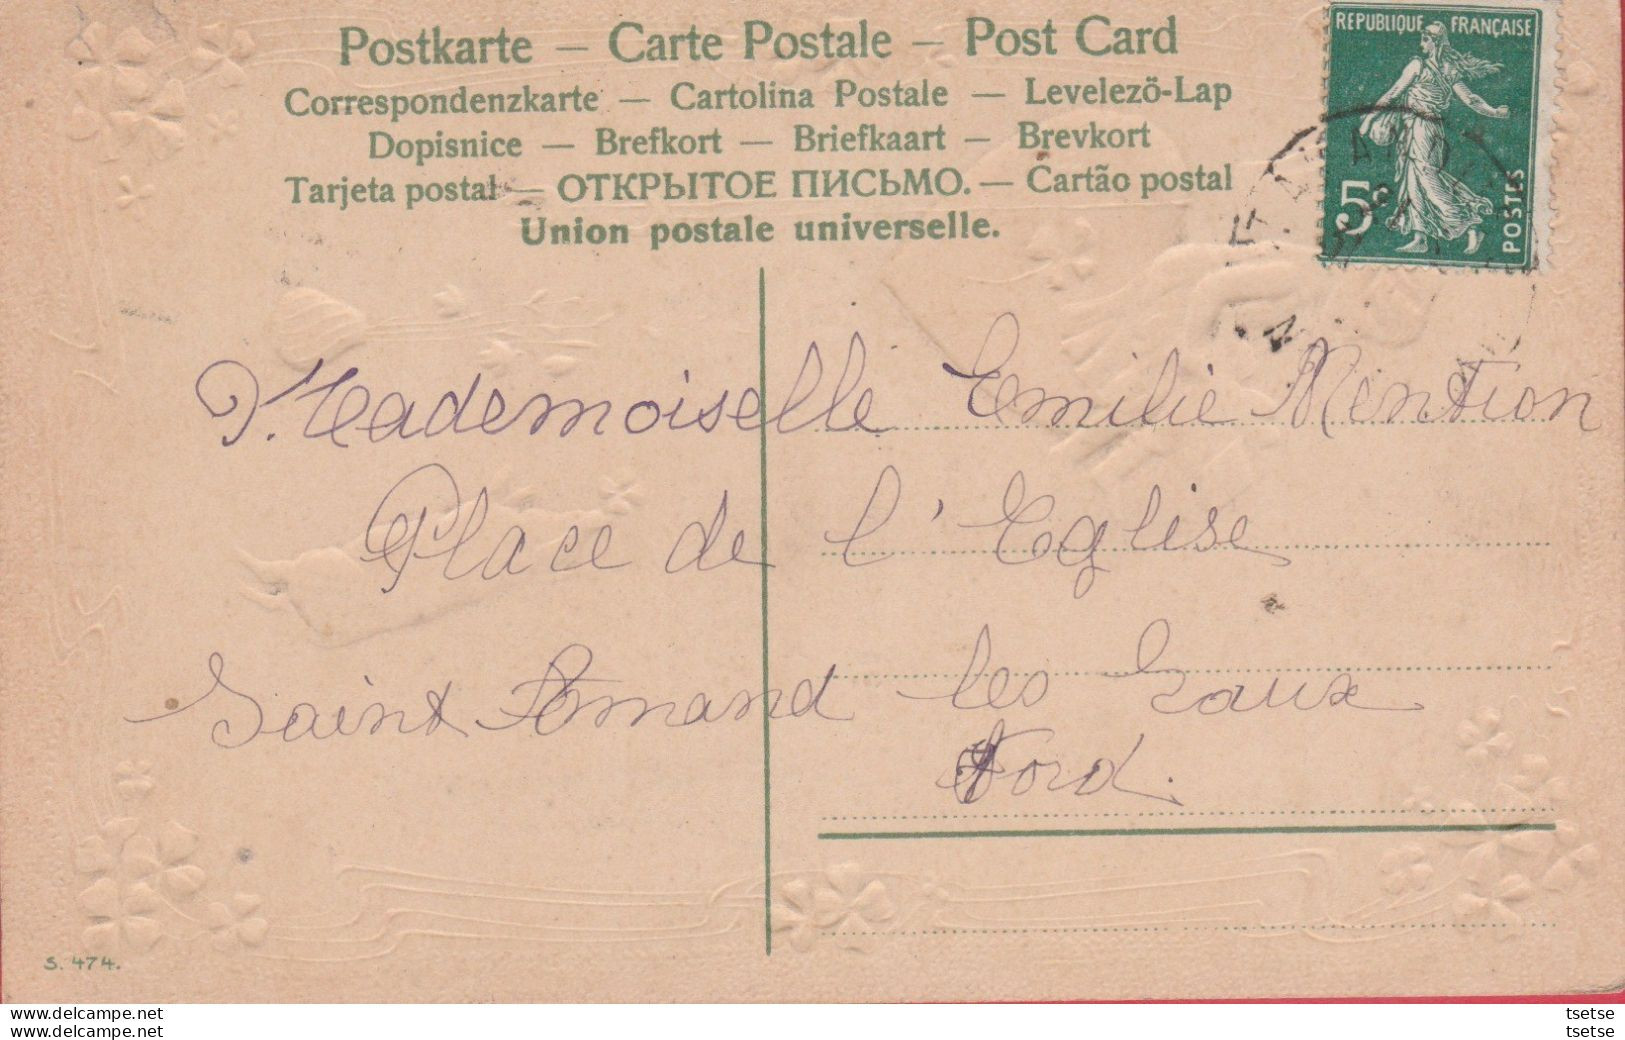 Postkarte — Carte Postale — Post Card
Correspondenzkarte — Cartolina Postale — Levelezö-Lap
Dopisnice — Brefkort — Briefkaart — Brevkort
Tarjeta postal — ОТКРЫТОЕ ПИСЬМО. — Cartão postal
Union postale universelle.
REPUBLIQUE FRANÇAISE
5c POSTES
Mademoiselle Emilie Mention
Place de l'Eglise
Saint Amand les Eaux
Nord.
S. 474.
www.delcampe.net tsetse
www.delcampe.net tsetse